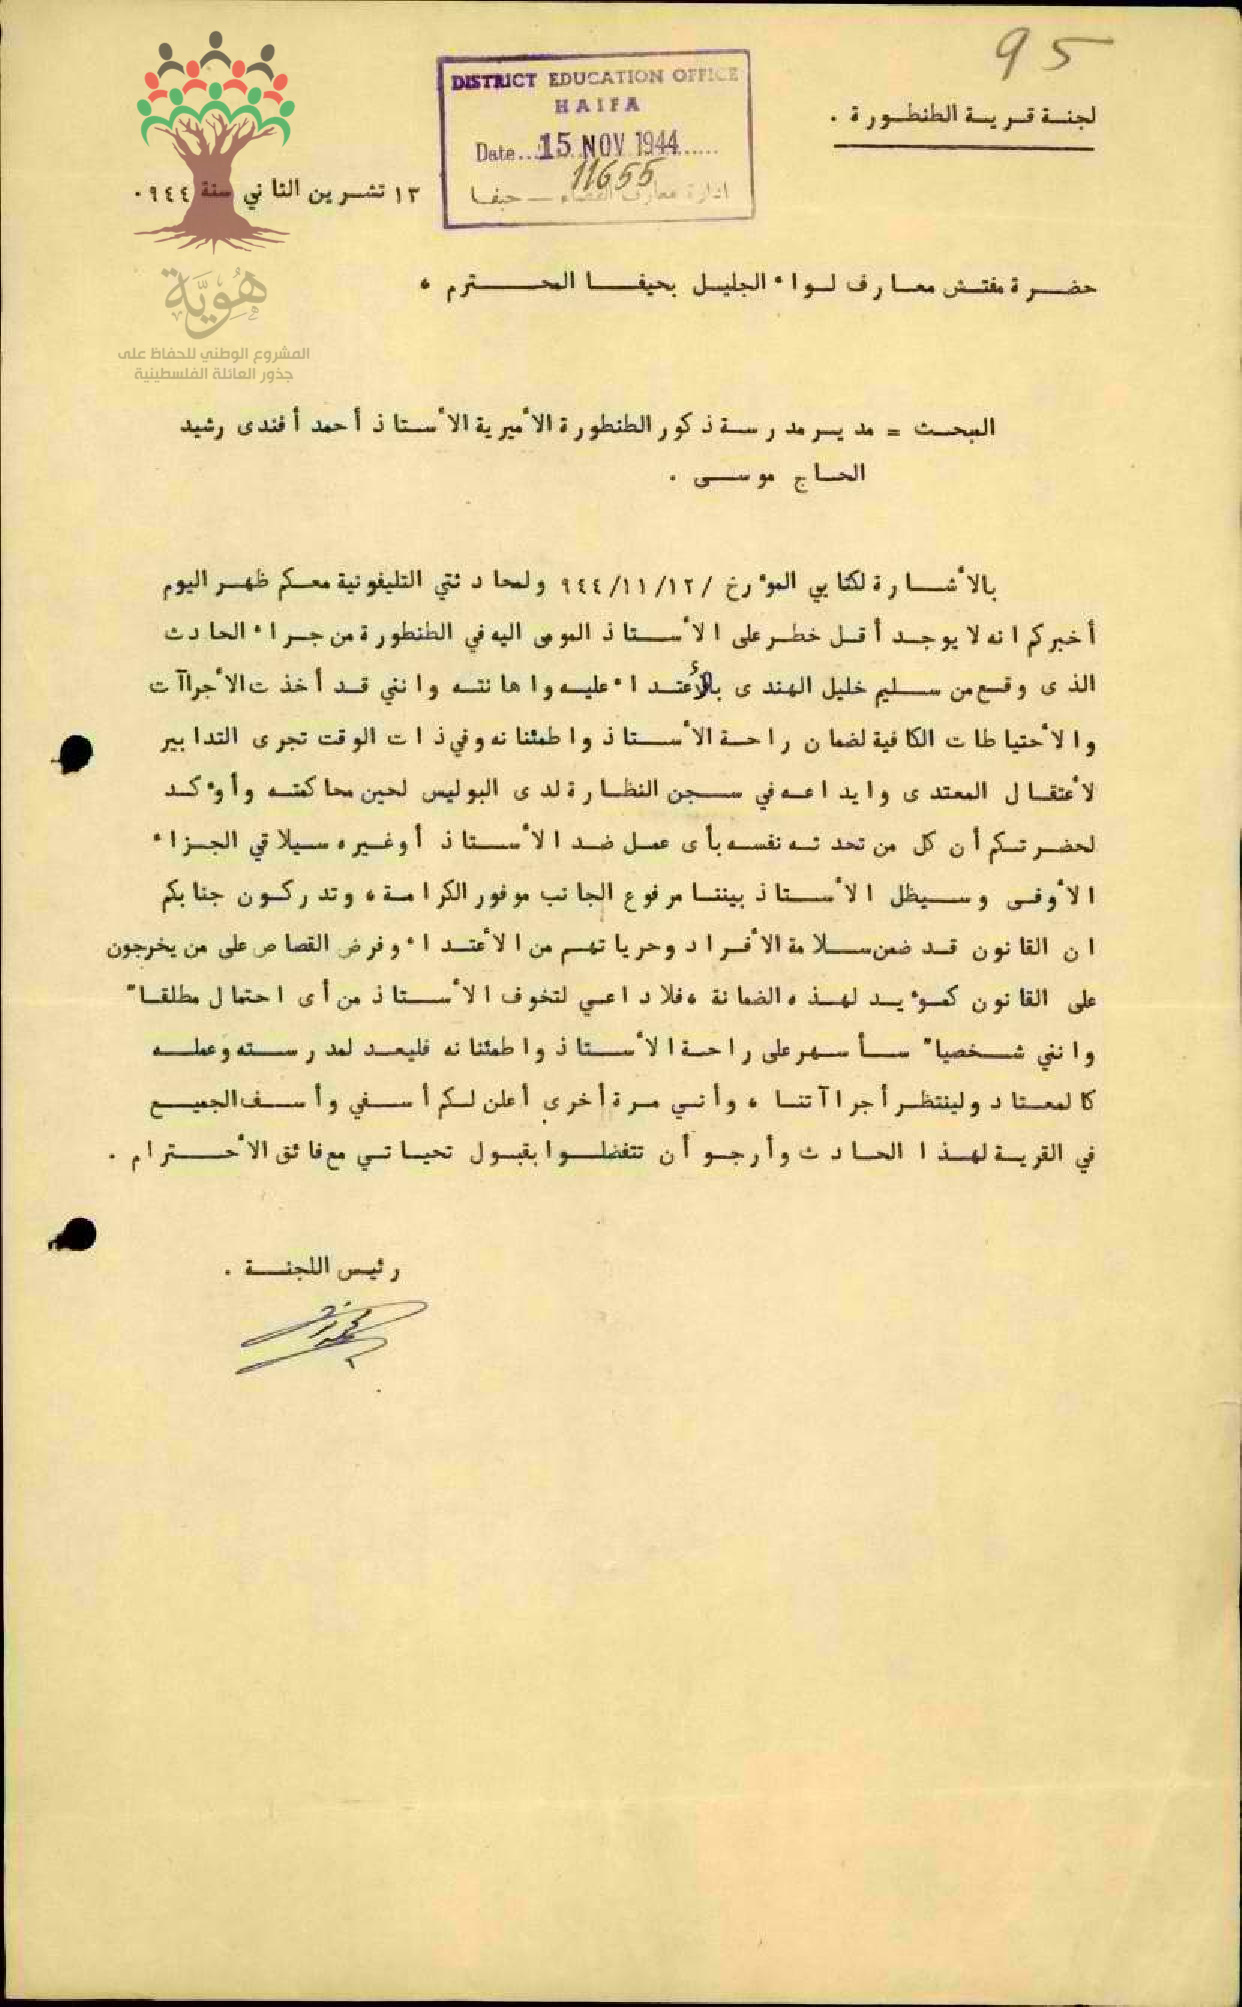 95
لجنة قرية الطنطورة .
DISTRICT EDUCATION OFFICE
HAIFA
Date... 15 NOV 1944......
11655
ادارة معارف القضاء — حيفا
١٣ تشرين الثاني سنة ٩٤٤ .
هُوِيَّة
المشروع الوطني للحفاظ على
جذور العائلة الفلسطينية
حضرة مفتش معارف لواء الجليل بحيفا المحترم ،
المبحث = مدير مدرسة ذكور الطنطورة الأميرية الأستاذ أحمد أفندى رشيد
الحاج موسى .
بالأشارة لكتابي المؤرخ /١٢/١١/٩٤٤ ولمحادثتي التليفونية معكم ظهر اليوم
أخبركم انه لا يوجد أقل خطر على الأستاذ المومى اليه في الطنطورة من جراء الحادث
الذى وقع من سليم خليل الهندى بالأعتداء عليه واهانته وانني قد أخذت الأجراآت
والأحتياطات الكافية لضمان راحة الأستاذ واطمئنانه وفي ذات الوقت تجرى التدابير
لأعتقال المعتدى وايداعه في سجن النظارة لدى البوليس لحين محاكمته وأوكد
لحضرتكم أن كل من تحدثه نفسه بأى عمل ضد الأستاذ أوغيره سيلاقي الجزاء
الأوفى وسيظل الأستاذ بيننا مرفوع الجانب موفور الكرامة ، وتدركون جنابكم
ان القانون قد ضمن سلامة الأفراد وحرياتهم من الأعتداء وفرض القصاص على من يخرجون
على القانون كمؤيد لهذه الضمانة ، فلا داعي لتخوف الأستاذ من أى احتمال مطلقا"
وانني شخصيا" سأسهر على راحة الأستاذ واطمئنانه فليعد لمدرسته وعمله
كالمعتاد ولينتظر أجراآتنا ، وأني مرة أخرى أعلن لكم أسفي وأسف الجميع
في القرية لهذا الحادث وأرجو أن تتفضلوا بقبول تحياتي مع فائق الأحترام .
رئيس اللجنة .